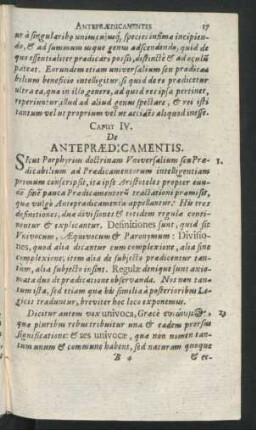 ANTEPRÆDICAMENTIS 17
tur à singularibº unius cujusq;, species infima incipien-
do, & ad summum usque genus adscendendo, quid de
quo essentialiter prædicari possit, distinctè & ad oculū
pateat. Eorundem etiam universalium seu prædica-
bilium beneficio intelligitur, si quid de re prædicetur
ultra ea, quæ in illo genere, ad quid rei ipsa pertinet,
reperiuntur, illud ad aliud genus spectare, & rei isti
tantum vel ut proprium vel ut accidēs aliquod inesse.
CAPUT IV.
De
ANTEPRÆDICAMENTIS.
SIcut Porphyrius doctrinam Vniversalium seu Præ- 1.
dicabilium ad Prædicamentorum intelligentiam
primum conscripsit, ita ipse Aristoteles propter eun-
dē finē pauca Prædicamentorū tractationi præmisit,
quæ vulgò Antepradicamenta appellantur: His tres
definitiones, duæ divisiones & totidem regulæ conti-
nentur & explicantur. Definitiones sunt, quid sit
Vnivocum, Æquivocum & Paronymum: Divisio-
nes, quod alia dicantur cum complexione, alia sine
complexione; item alia de subjecto prædicentur tan-
tum, alia subjecto insint. Regulæ denique sunt axio-
mata duo de prædicatione observanda. Nos non tan-
tum ista, sed etiam quæ his similia à posterioribus Lo-
gicis traduntur, breviter hoc loco exponemus.
Dicitur autem vox univoca, Græcè 2.
quæ pluribus rebus tribuitur una & eadem prorsus
significatione: & res univocæ, quæ non nomen tan-
tum unum & commune habent, sed naturam quoque
B 4 & es-